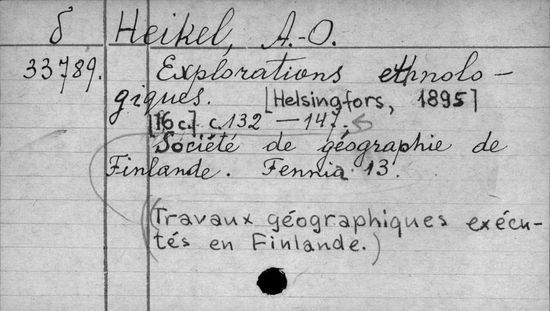 б Heikel, A.-O.
33789. Explorations ethnolo-
giques. [Helsingfors, 1895]
[16 c.] c. 132 — 147.
Société de géographie de
Finlande. Fennia 13.
(Travaux géographiques exécu-
tés en Finlande.)